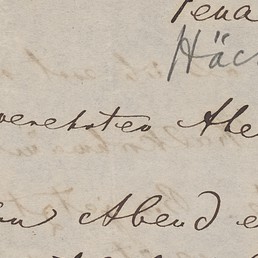 Jena
Häc
verehrter Abe
en Abend e